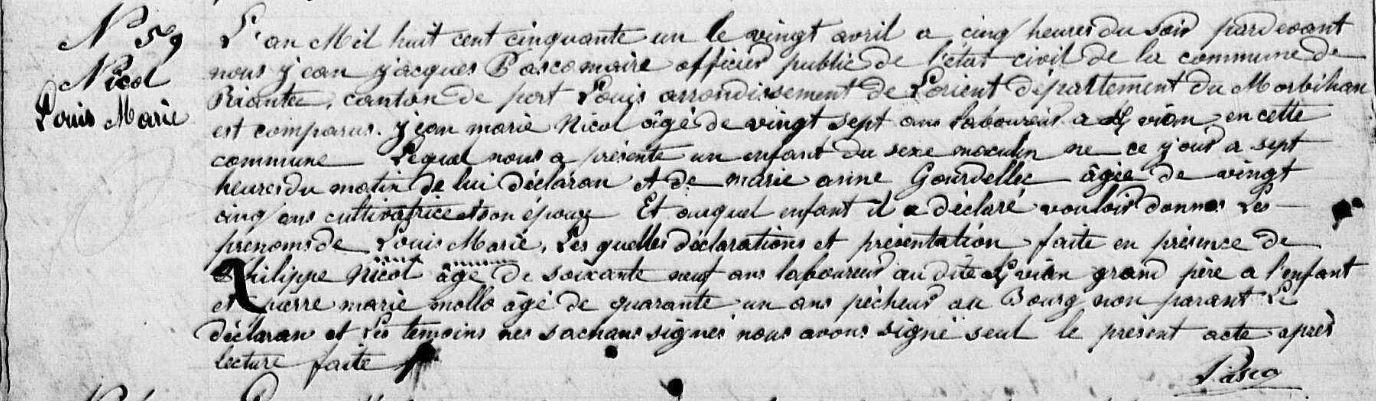 N° 59
Nicol
Louis Marie
L'an Mil huit cent cinquante un le vingt avril a cinq heures du soir pardevant
nous jean jacques Pasco maire officier public de l'état civil de la commune de
Riantec, canton de port Louis arrondissement de Lorient département du Morbihan
est comparus. jean marie Nicol âge de vingt sept ans laboureur a en cette
commune Lequel nous a présenté un enfant du sexe masculin né ce jour a sept
heures du matin de lui déclaran et de marie anne Gourdellec âgée de vingt
cinq ans cultivatrice et son épouze Et auquel enfant il a déclaré vouloir donner Les
prénoms de Louis Marie, Les quelles déclarations et présentation faite en présence de
Philippe Nicol âgé de soixante neuf ans laboureur au dite grand père a l'enfant
et pierre marie mollo âgé de quarante un ans pécheur au Bourg non parant Le
déclaran et Les temoins nes sachans signer nous avons signé seul le présent acte après
lecture faite
Pasco